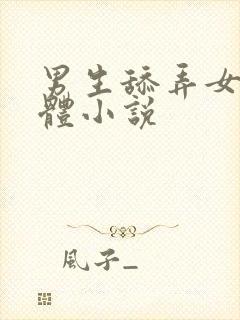 男生舔弄女
體小説
風子_